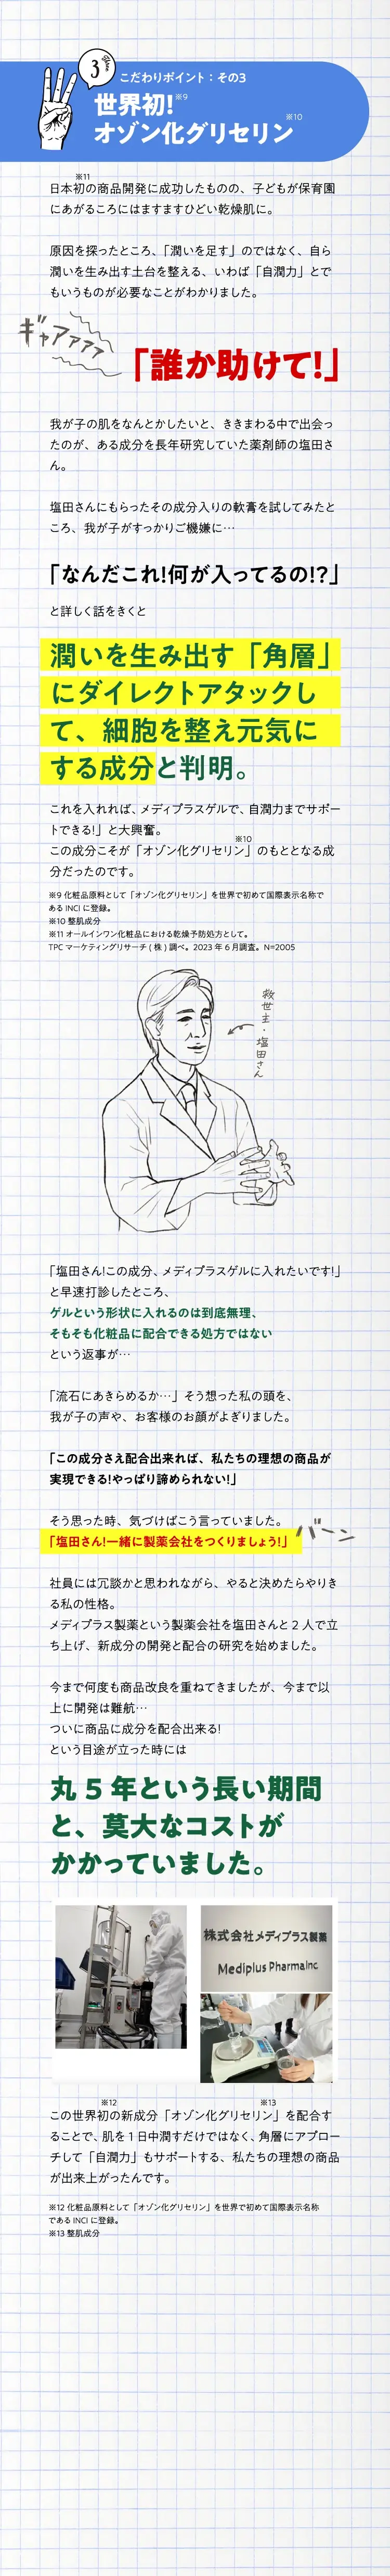 3
こだわりポイント：その3
世界初!※9
オゾン化グリセリン※10
※11
日本初の商品開発に成功したものの、子どもが保育園
にあがるころにはますますひどい乾燥肌に。
原因を探ったところ、「潤いを足す」のではなく、自ら
潤いを生み出す土台を整える、いわば「自潤力」とで
もいうものが必要なことがわかりました。
ギャアァァァ
「誰か助けて!」
我が子の肌をなんとかしたいと、ききまわる中で出会っ
たのが、ある成分を長年研究していた薬剤師の塩田さ
ん。
塩田さんにもらったその成分入りの軟膏を試してみたと
ころ、我が子がすっかりご機嫌に…
「なんだこれ!何が入ってるの!?」
と詳しく話をきくと
潤いを生み出す「角層」
にダイレクトアタックし
て、細胞を整え元気に
する成分と判明。
これを入れれば、メディプラスゲルで、自潤力までサポー
トできる!」と大興奮。
※10
この成分こそが「オゾン化グリセリン」のもととなる成
分だったのです。
※9 化粧品原料として「オゾン化グリセリン」を世界で初めて国際表示名称で
ある INCI に登録。
※10 整肌成分
※11 オールインワン化粧品における乾燥予防処方として。
TPC マーケティングリサーチ ( 株 ) 調べ。2023 年 6 月調査。N=2005
救世主・塩田さん
「塩田さん!この成分、メディプラスゲルに入れたいです!」
と早速打診したところ、
ゲルという形状に入れるのは到底無理、
そもそも化粧品に配合できる処方ではない
という返事が…
「流石にあきらめるか…」そう想った私の頭を、
我が子の声や、お客様のお顔がよぎりました。
「この成分さえ配合出来れば、私たちの理想の商品が
実現できる!やっぱり諦められない!」
そう思った時、気づけばこう言っていました。
「塩田さん!一緒に製薬会社をつくりましょう!」
バーン
社員には冗談かと思われながら、やると決めたらやりき
る私の性格。
メディプラス製薬という製薬会社を塩田さんと 2 人で立
ち上げ、新成分の開発と配合の研究を始めました。
今まで何度も商品改良を重ねてきましたが、今まで以
上に開発は難航…
ついに商品に成分を配合出来る!
という目途が立った時には
丸 5 年という長い期間
と、莫大なコストが
かかっていました。
株式会社メディプラス製薬
Mediplus PharmaInc
※12 ※13
この世界初の新成分「オゾン化グリセリン」を配合す
ることで、肌を 1 日中潤すだけではなく、角層にアプロー
チして「自潤力」もサポートする、私たちの理想の商品
が出来上がったんです。
※12 化粧品原料として「オゾン化グリセリン」を世界で初めて国際表示名称
である INCI に登録。
※13 整肌成分